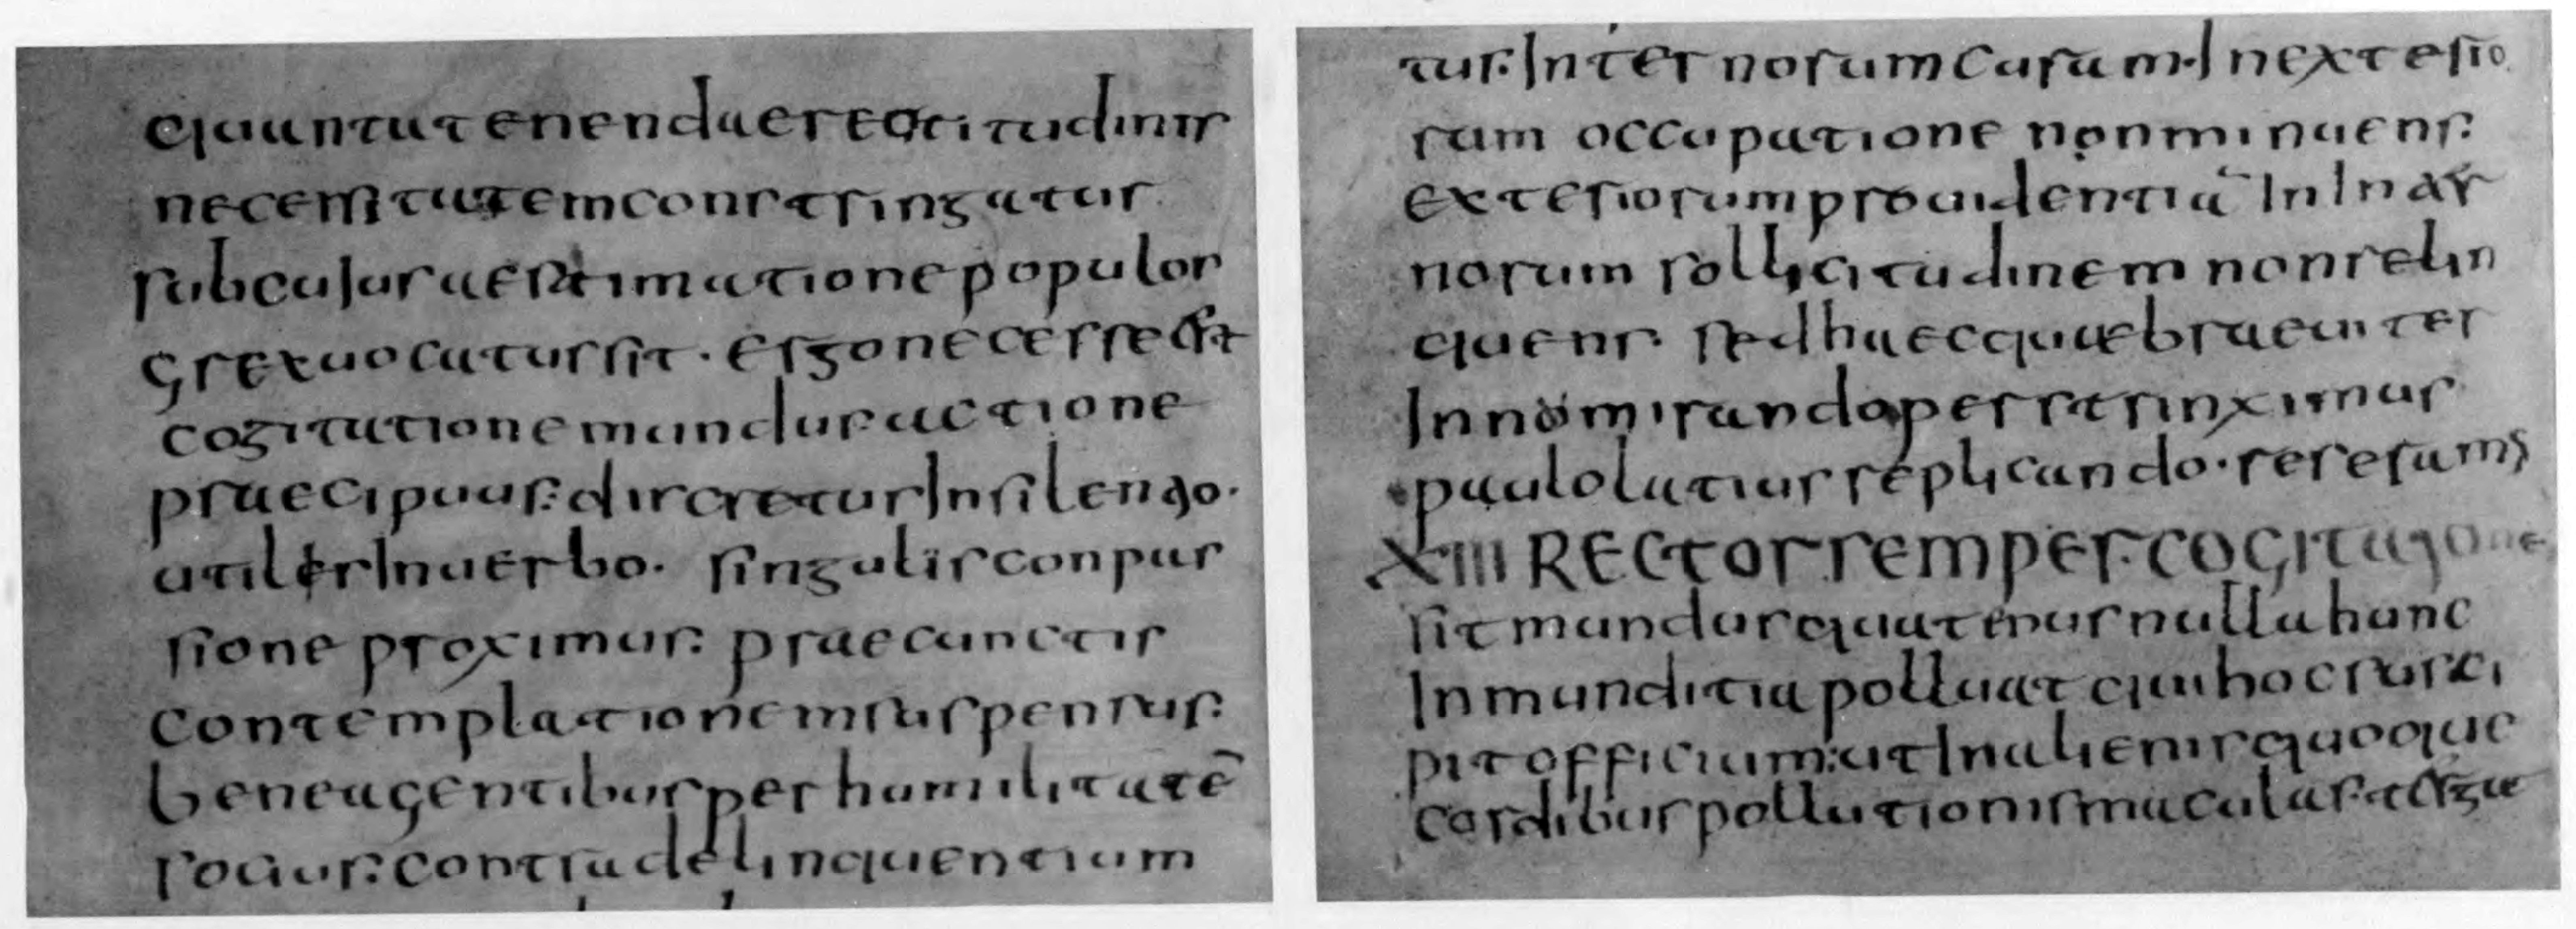 quanta tenendae rectitudinis
necessitatem constringatur
sub cuius aestimatione popolor
grex uocatus sit · ergo necesse est
cogitatione mundus actione
praecipuus: discretus In silentio·
utiliter In uerbo· singulis conpas
sione proximus: prae cunctis
contemplationem suspensus:
bene agentibus per humilitatē
socius: contra delinquentium
tus: Internorum curam· In exterio
rum occupatione non minuens:
exteriorum prouidentiā In Inter
norum sollicitudinem non relin
quens· sed haec quae breuiter
In nomirando perstrinximus·
paulo latius replicando· reseramus
XIII RECTOR semper· COGITATIOne
sit mundus quatenus nulla hunc
Inmunditia polluat qui hoc susci
pit officium: ut In alienis quoque
cordibus pollutionis maculas· tergue